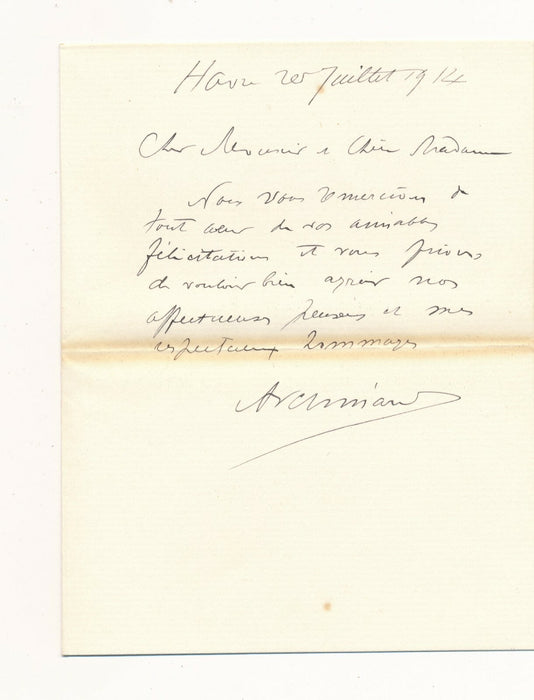 Havre 20 Juillet 1914
Cher Monsieur & Chère Madame
Nous vous remercions de
tout cœur de vos aimables
félicitations et vous prions
de vouloir bien agréer nos
affectueuses pensées et mes
respectueux hommages